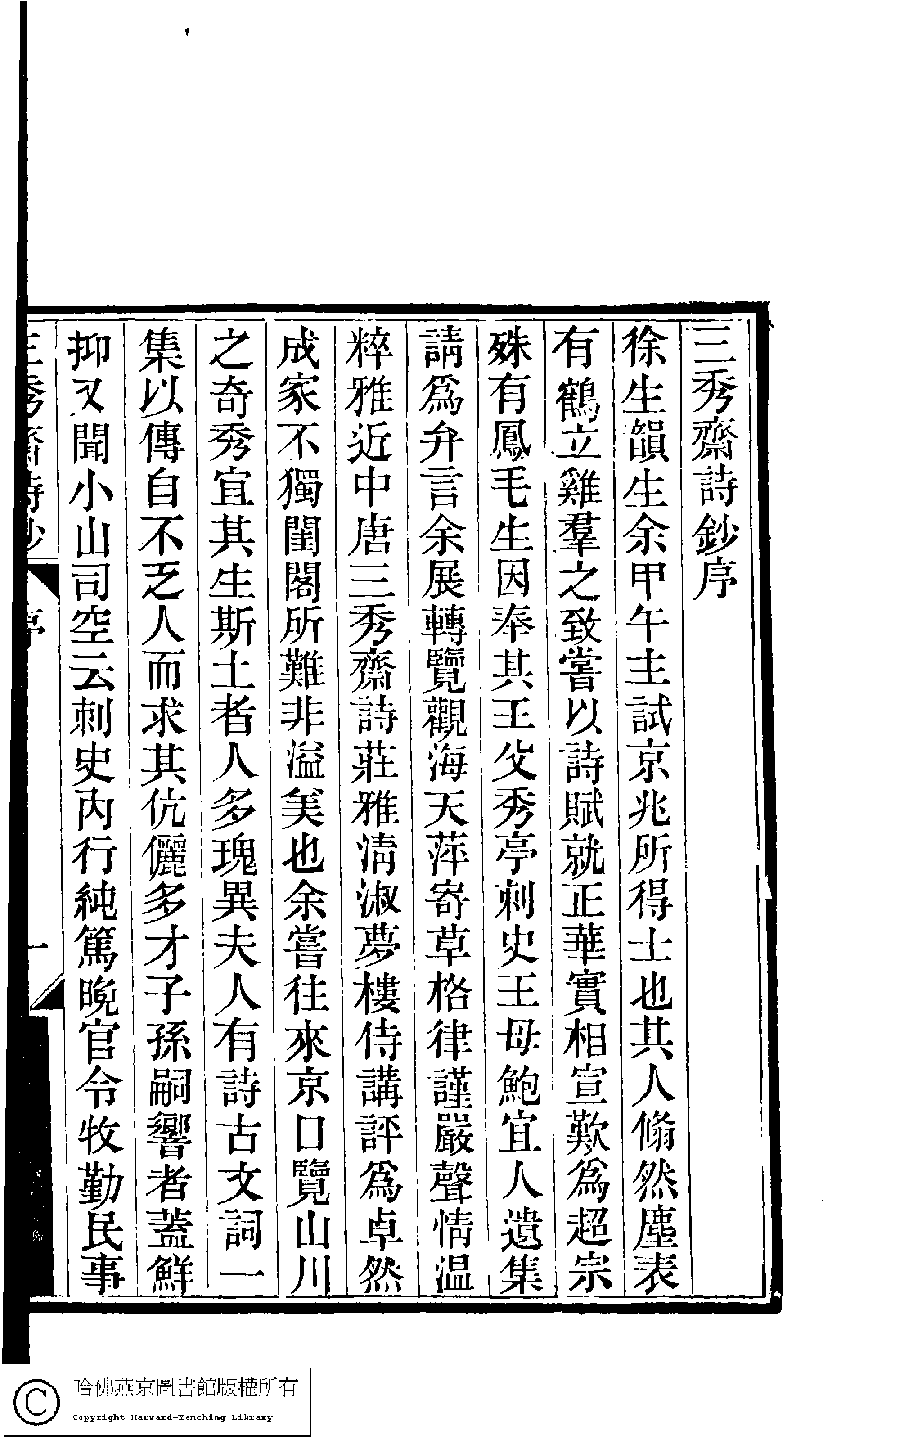 三秀齋詩鈔序
徐生韻生余甲午主試京兆所得士也其人翛然塵表
有鶴立雞羣之致嘗以詩賦就正華實相宣歎為超宗
殊有鳳毛生因奉其王父秀亭刺史王母鮑宜人遺集
請為弁言余展轉覽觀海天萍寄草格律謹嚴聲情温
粹雅近中唐三秀齋詩莊雅清淑夢樓侍講評為卓然
成家不獨閨閣所難非溢美也余嘗往來京口覽山川
之奇秀宜其生斯土者人多瑰異夫人有詩古文詞一
集以傳自不乏人而求其伉儷多才子孫嗣響者蓋鮮
抑又聞小山司空云刺史內行純篤晩官令牧勤民事
三秀齋詩鈔 序 一
哈佛燕京圖書館版權所有
Copyright Harvard-Yenching Library